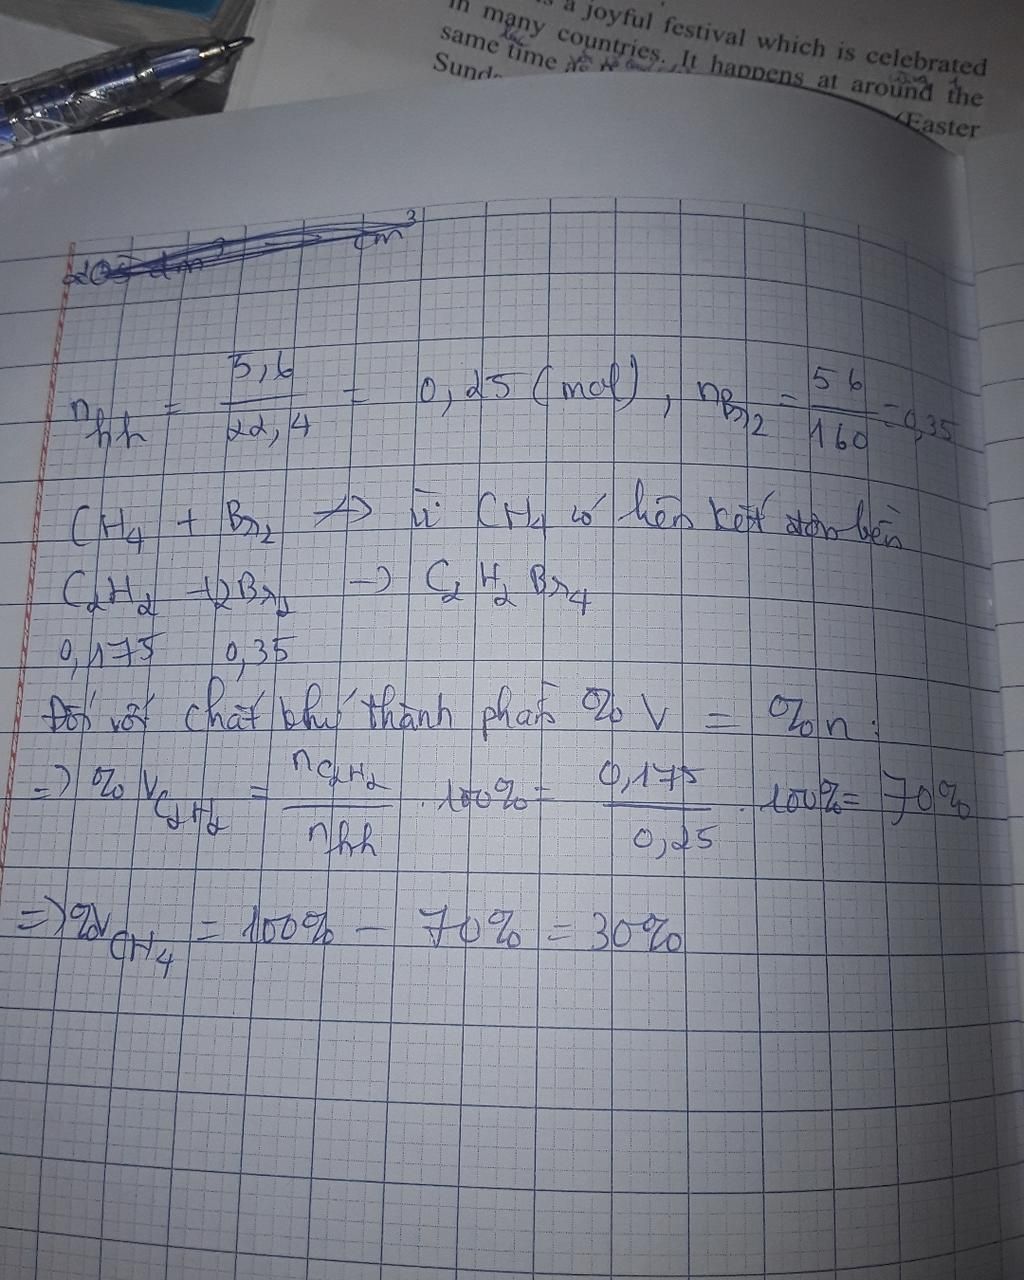 a joyful festival which is celebrated
in many countries. It happens at around the
same time
Sund
(Easter
cm³
n hh = 5,6 / 22,4 = 0,25 (mol), nBr2 = 56 / 160 = 0,35
CH4 + Br2 -/-> vì CH4 có liên kết đơn bền
C2H2 + 2Br2 -> C2H2Br4
0,175 0,35
Đối với chất khí thành phần % V = % n:
=> % VC2H2 = nC2H2 / nhh . 100% = 0,175 / 0,25 . 100% = 70%
=> %VCH4 = 100% - 70% = 30%